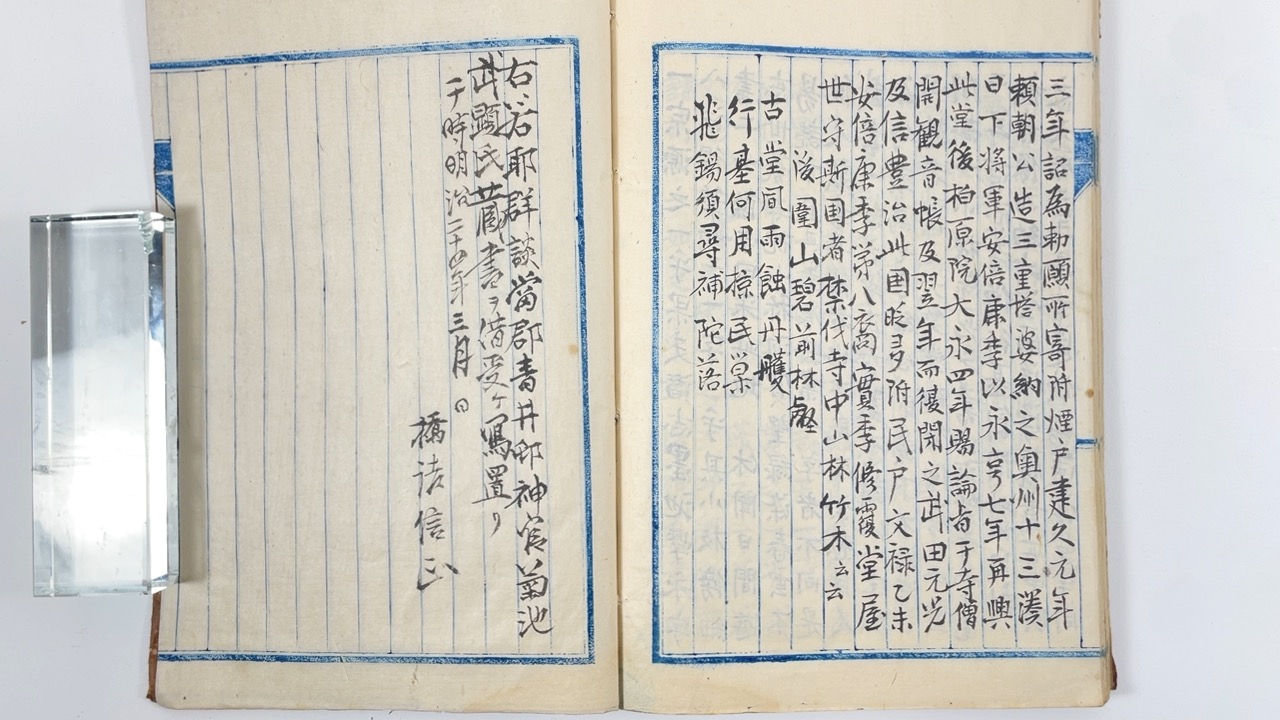 三年詔為勅願所寄附煙戸建久元年
頼朝公造三重塔婆納之奥州十三湊
日下将軍安倍康季以永享七年再興
此堂後柏原院大永四年賜論旨于寺僧
開観音帳及翌年而後閉之武田元光
及信豊治此国時多附民戸文禄乙未
安倍康季第八裔實季修覆堂屋
世守斯国者禁伐寺中山林竹木云云
後圍山碧前林壑
古堂風雨蝕丹雘
行基何用掠民巣
飛錫須尋補陀落
右若耶群談當郡青井邨神官菊池
武顕氏蔵書ヲ借受ケ写置リ
于時明治二十四年三月日
橋詰信正